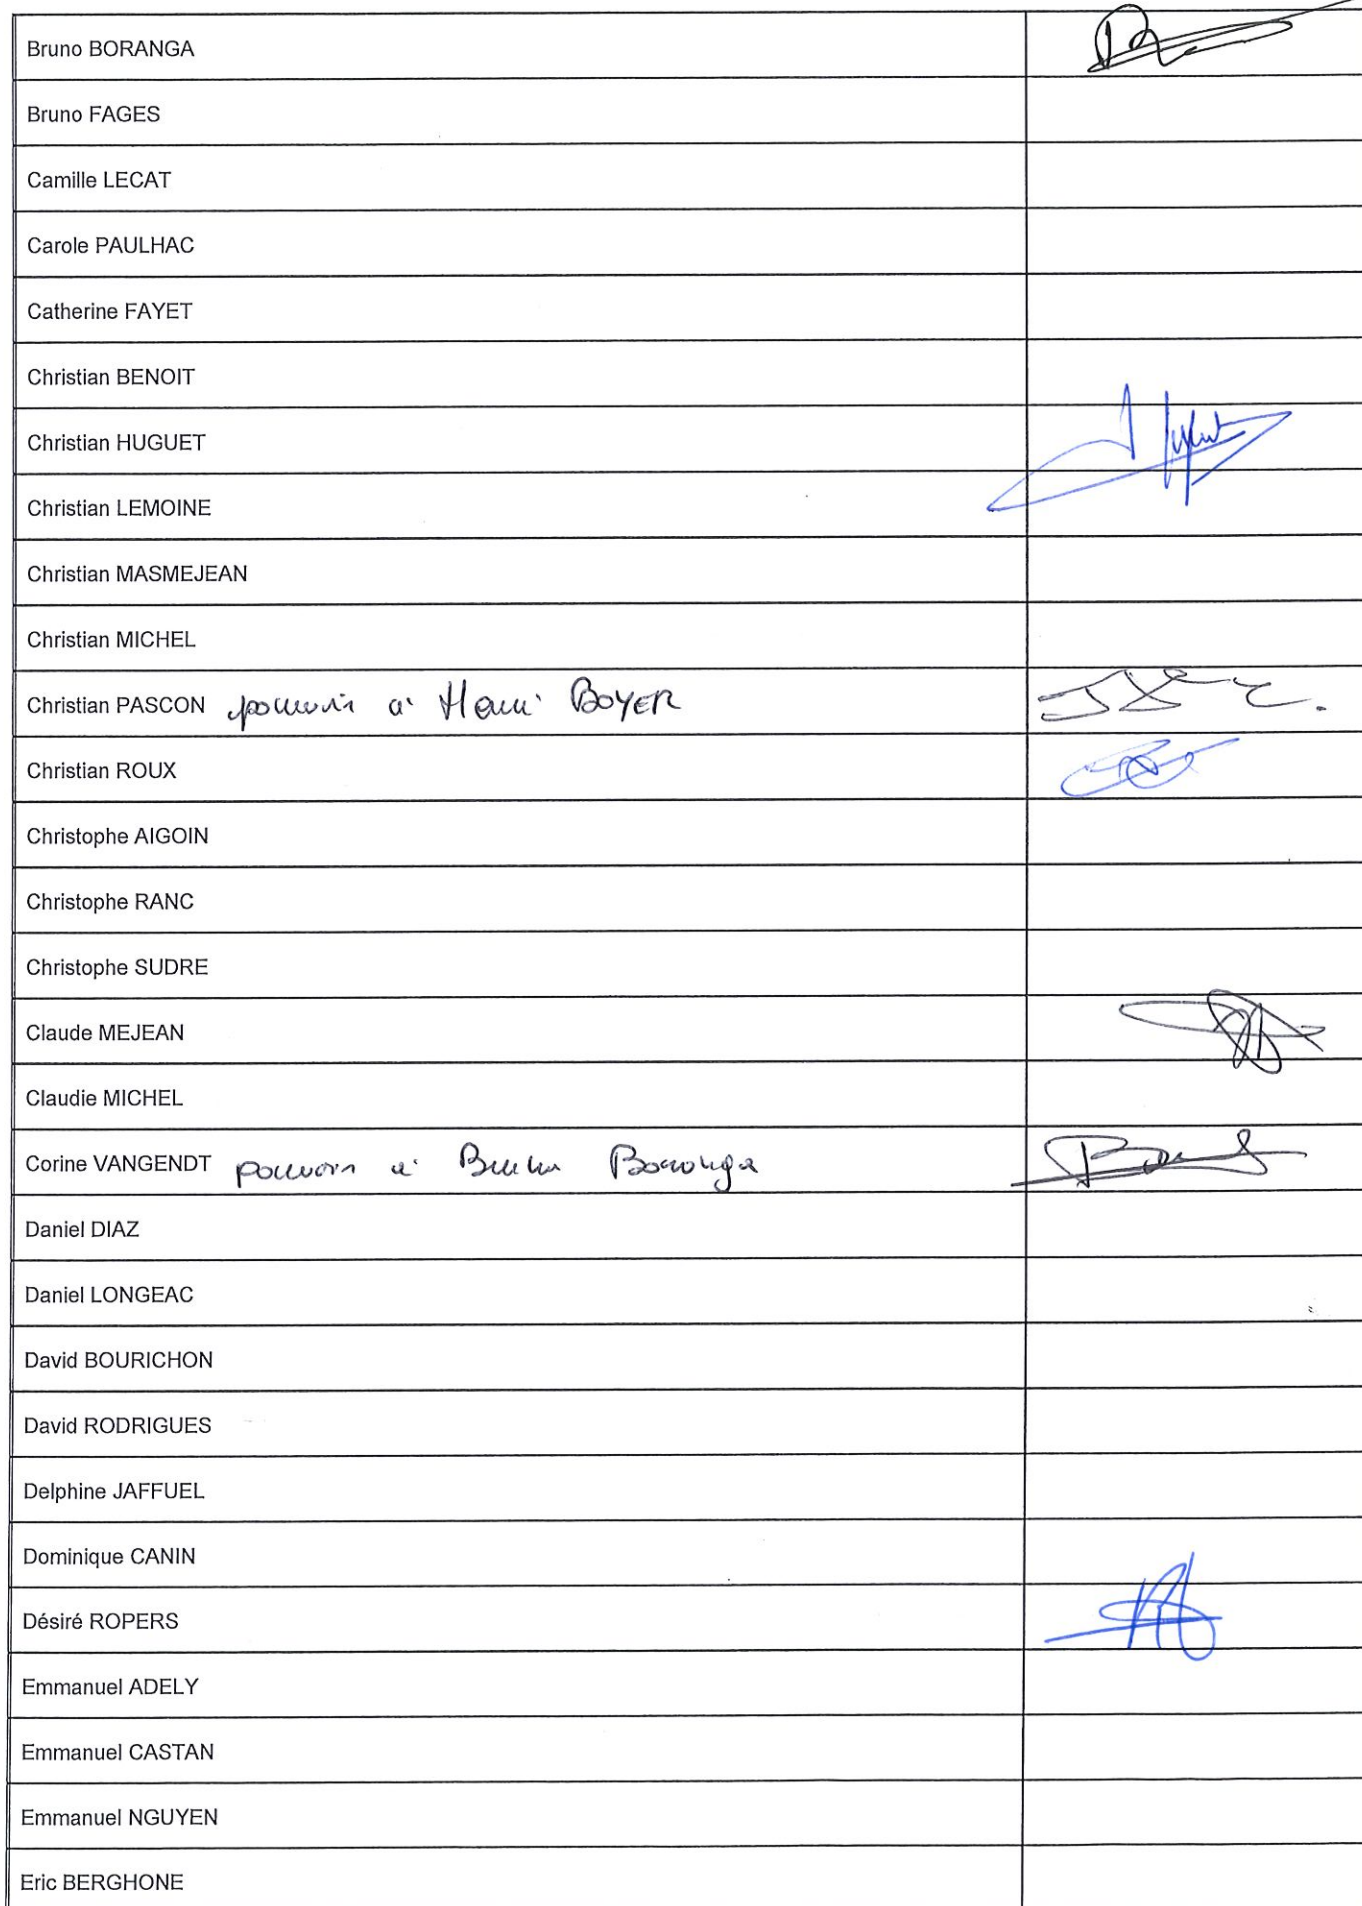 Bruno BORANGA
Bruno FAGES
Camille LECAT
Carole PAULHAC
Catherine FAYET
Christian BENOIT
Christian HUGUET
Christian LEMOINE
Christian MASMEJEAN
Christian MICHEL
Christian PASCON pouvoir à Henri BOYER
Christian ROUX
Christophe AIGOIN
Christophe RANC
Christophe SUDRE
Claude MEJEAN
Claudie MICHEL
Corine VANGENDT pouvoir à Bruno Boranga
Daniel DIAZ
Daniel LONGEAC
David BOURICHON
David RODRIGUES
Delphine JAFFUEL
Dominique CANIN
Désiré ROPERS
Emmanuel ADELY
Emmanuel CASTAN
Emmanuel NGUYEN
Eric BERGHONE